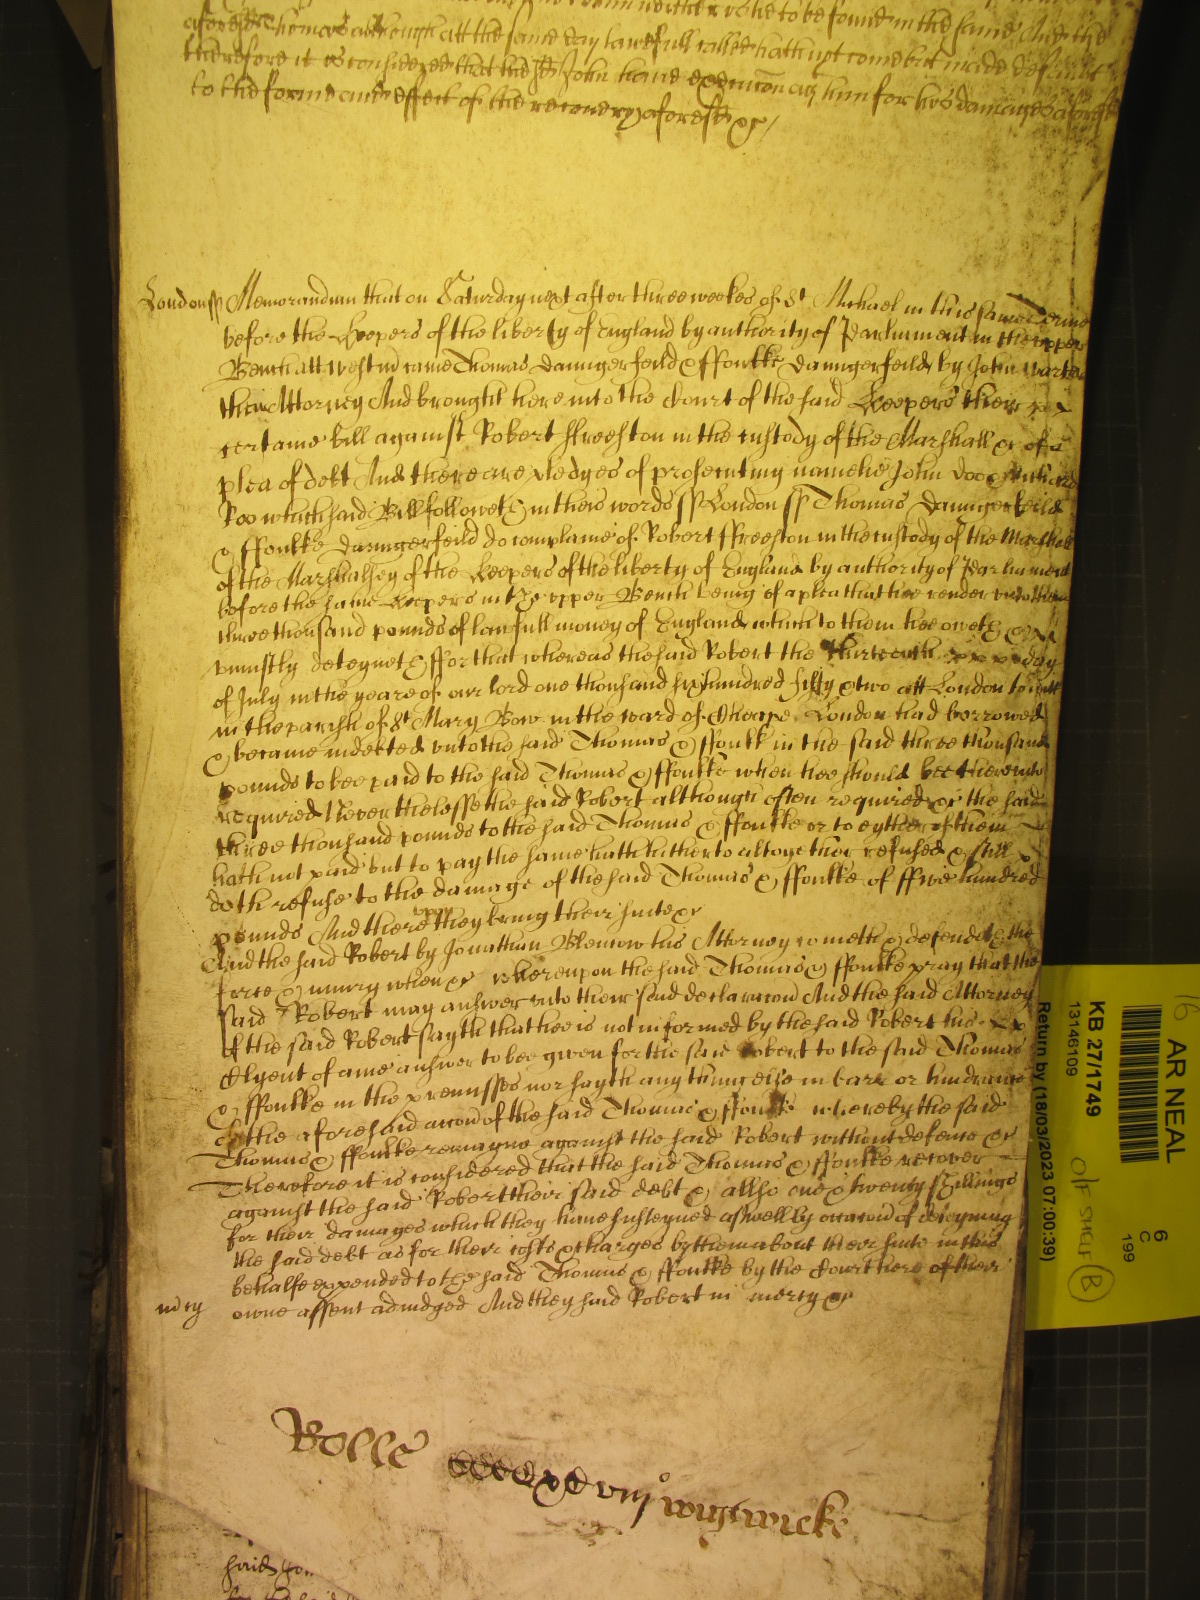 to be found in the same And the
att the same day lawfully called hath not come but made default
therefore it is considered that the sd John have execucon ag him for his damages aforesd
to the forme and effect of the recovery aforesd &c
London ss Memorandum that on Saturday next after three weekes of St Michael in this same Terme
before the Keepers of the liberty of England by authority of Parliament in the upper
Bench att Westmr came Thomas Daungerfeild & ffoulke Daungerfeild by John
their Attorney And brought here into the Court of the said Keepers then
certaine bill against Robert ffreeston in the custody of the Marshall &c of a
plea of debt And there are pledges of prosecuting namelie John Doo & Richard
Roo which said Bill followeth in theis words ss London ss Thomas Daungerfeild
& ffoulke Daungerfeild do complaine of Robert ffreeston in the custody of the Marshall
of the Marshallsey of the Keepers of the liberty of England by authority of Parliament
before the same Keepers in the upper Bench being of a plea that hee render unto them
three thousand pounds of lawfull money of England which to them hee oweth &
uniustly deteyneth ffor that whereas the said Robert the thirteenth day
of July in the yeare of our lord one thousand six hundred fifty & two att London to witt
in the parish of St Mary Bow in the ward of Cheape London had borrowed
& became indebted unto the said Thomas & ffoulk in the said three thousand
pounds to bee paid to the said Thomas & ffoulke when hee should bee thereunto
required Neverthelesse the said Robert although often required &c the said
three thousand pounds to the said Thomas & ffoulke or to eyther of them
hath not paid but to pay the same hath hitherto altogether refused & still
doth refuse to the damage of the said Thomas & ffoulke of ffive hundred
pounds And thereupon they bring their suite &c
And the said Robert by Jonathan Blenkow his Attorney cometh & defendeth the
force & iniury when &c whereupon the said Thomas & ffoulke pray that the
said Robert may answer unto their said declaracon And the said Attorney
of the said Robert sayth that hee is not informed by the said Robert his
Clyent of anie answer to bee given for the said Robert to the said Thomas
& ffoulke in the premisses nor sayth any thing else in barr or hindrance
of the aforesaid accon of the said Thomas & ffoulke whereby the said
Thomas & ffoulke remayne against the said Robert without defence &c
Therefore it is considered that the said Thomas & ffoulke recover
against the said Robert their said debt & allso one & twenty shillings
for their damages which they have susteyned aswell by occacon of deteyning
the said debt as for their costs & charges by them about their suite in this
behalfe expended to the said Thomas & ffoulke by the Court here of their
mcy owne assent adiudged And they said Robert in mercy &c
Rolle viij Wightwicke
said
16 AR NEAL
6
C
199
KB 27/1749
13146109
O/F SHELF B
Return by (18/03/2023 07:00:39)